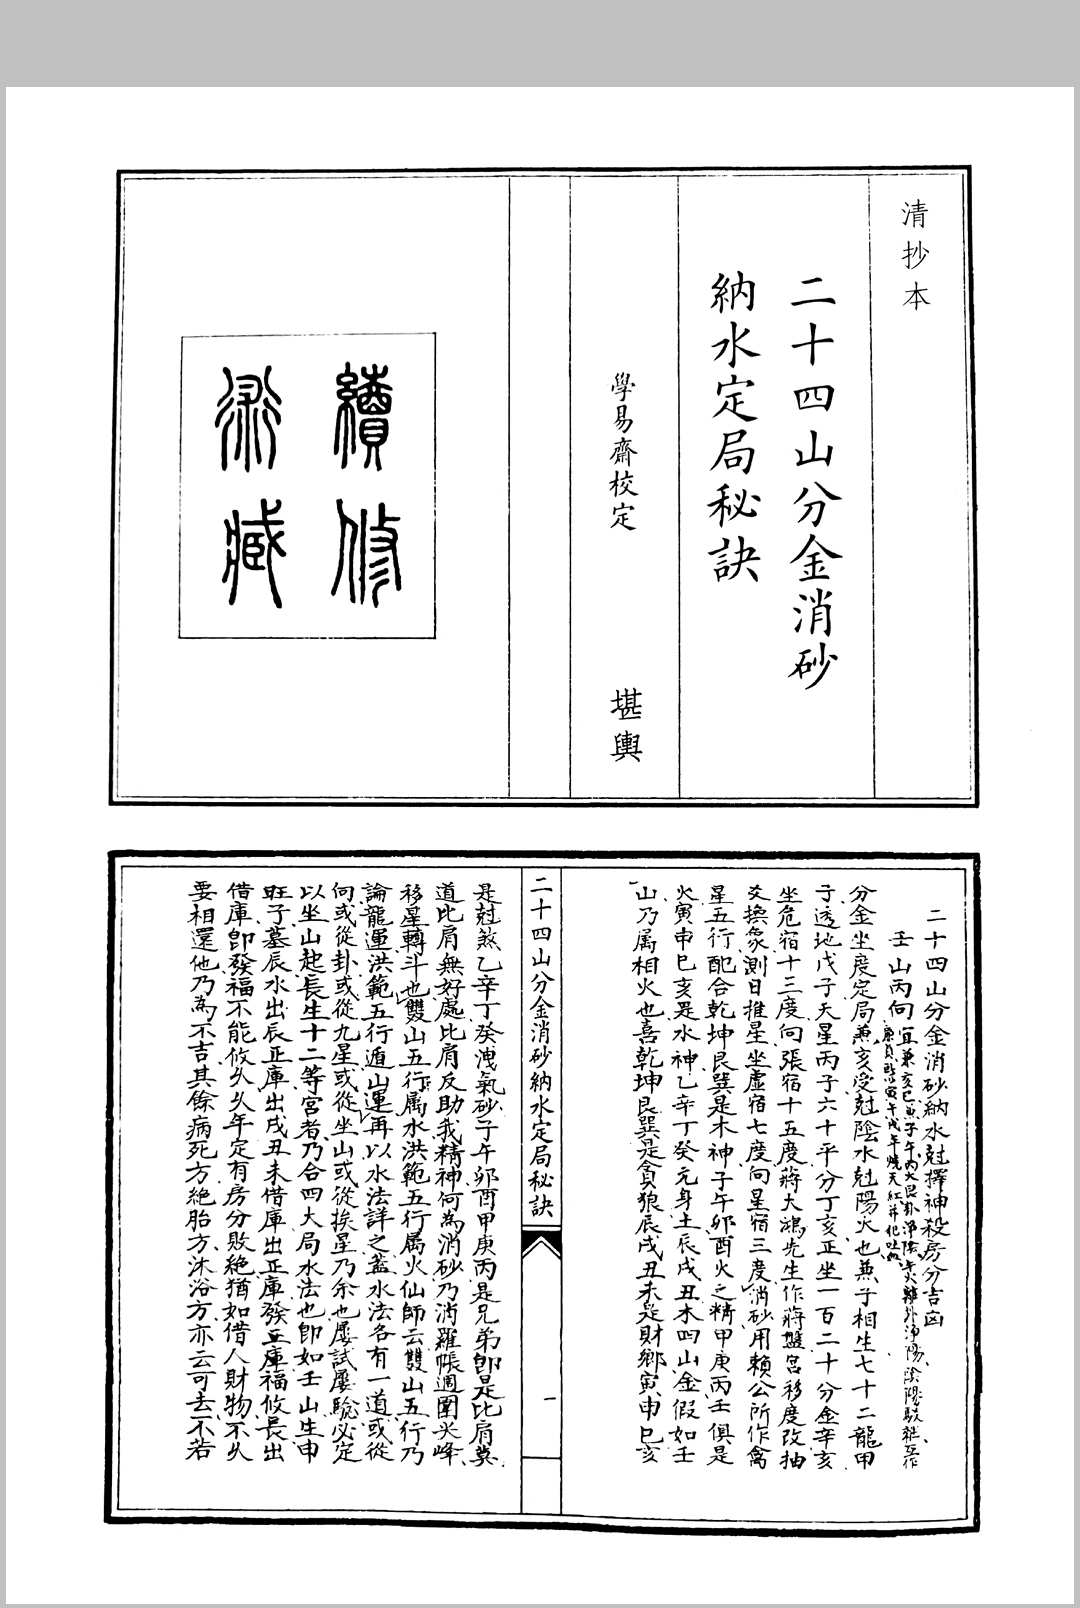 清抄本
二十四山分金消砂
納水定局秘訣
學易齋校定
堪輿
續修
術藏
二十四山分金消砂納水尅擇神殺房分吉凶
壬山丙向
宜兼亥巳兼子午丙火艮卦淨陰午火離卦淨陽陰陽駁雜互作
寅午戌年
分金坐度定局兼亥受尅陰水尅陽火也兼子相生七十二龍甲
子透地戊子天星丙子六十平分丁亥正坐一百二十分金辛亥
坐危宿十三度向張宿十五度蔣大鴻先生作蔣盤宮移度改抽
爻換象測日推星坐虛宿七度向星宿三度消砂用賴公所作禽
星五行配合乾坤艮巽是木神子午卯酉火之精甲庚丙壬俱是
火寅申巳亥是水神乙辛丁癸元身土辰戌丑未四山金假如壬
山乃属相火也喜乾坤艮巽是貪狼辰戌丑未是財鄉寅申巳亥
二十四山分金消砂納水定局秘訣
一
是尅煞乙辛丁癸洩氣砂子午卯酉甲庚丙是兄弟即是比肩莫
道比肩無好處比肩反助我精神何為消砂乃消羅帳週圍尖峰
移星轉斗也雙山五行属水洪範五行属火仙師云雙山五行乃
論龍運洪範五行遁山運再以水法詳之蓋水法各有一道或從
向或從卦或從九星或從坐山或從挨星乃余也屢試屢驗必定
以坐山起長生十二等宮者乃合四大局水法也即如壬山生申
旺子墓辰水出辰正庫出戌丑未借庫出正庫發正庫福攸長出
借庫即發福不能攸久久年定有房分敗絕猶如借人財物不久
要相還他乃為不吉其餘病死方絕胎方沐浴方亦云可去不若